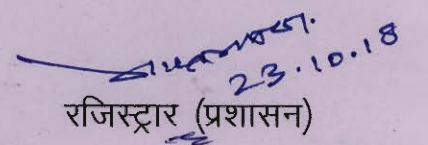 23.10.18
रजिस्ट्रार (प्रशासन)